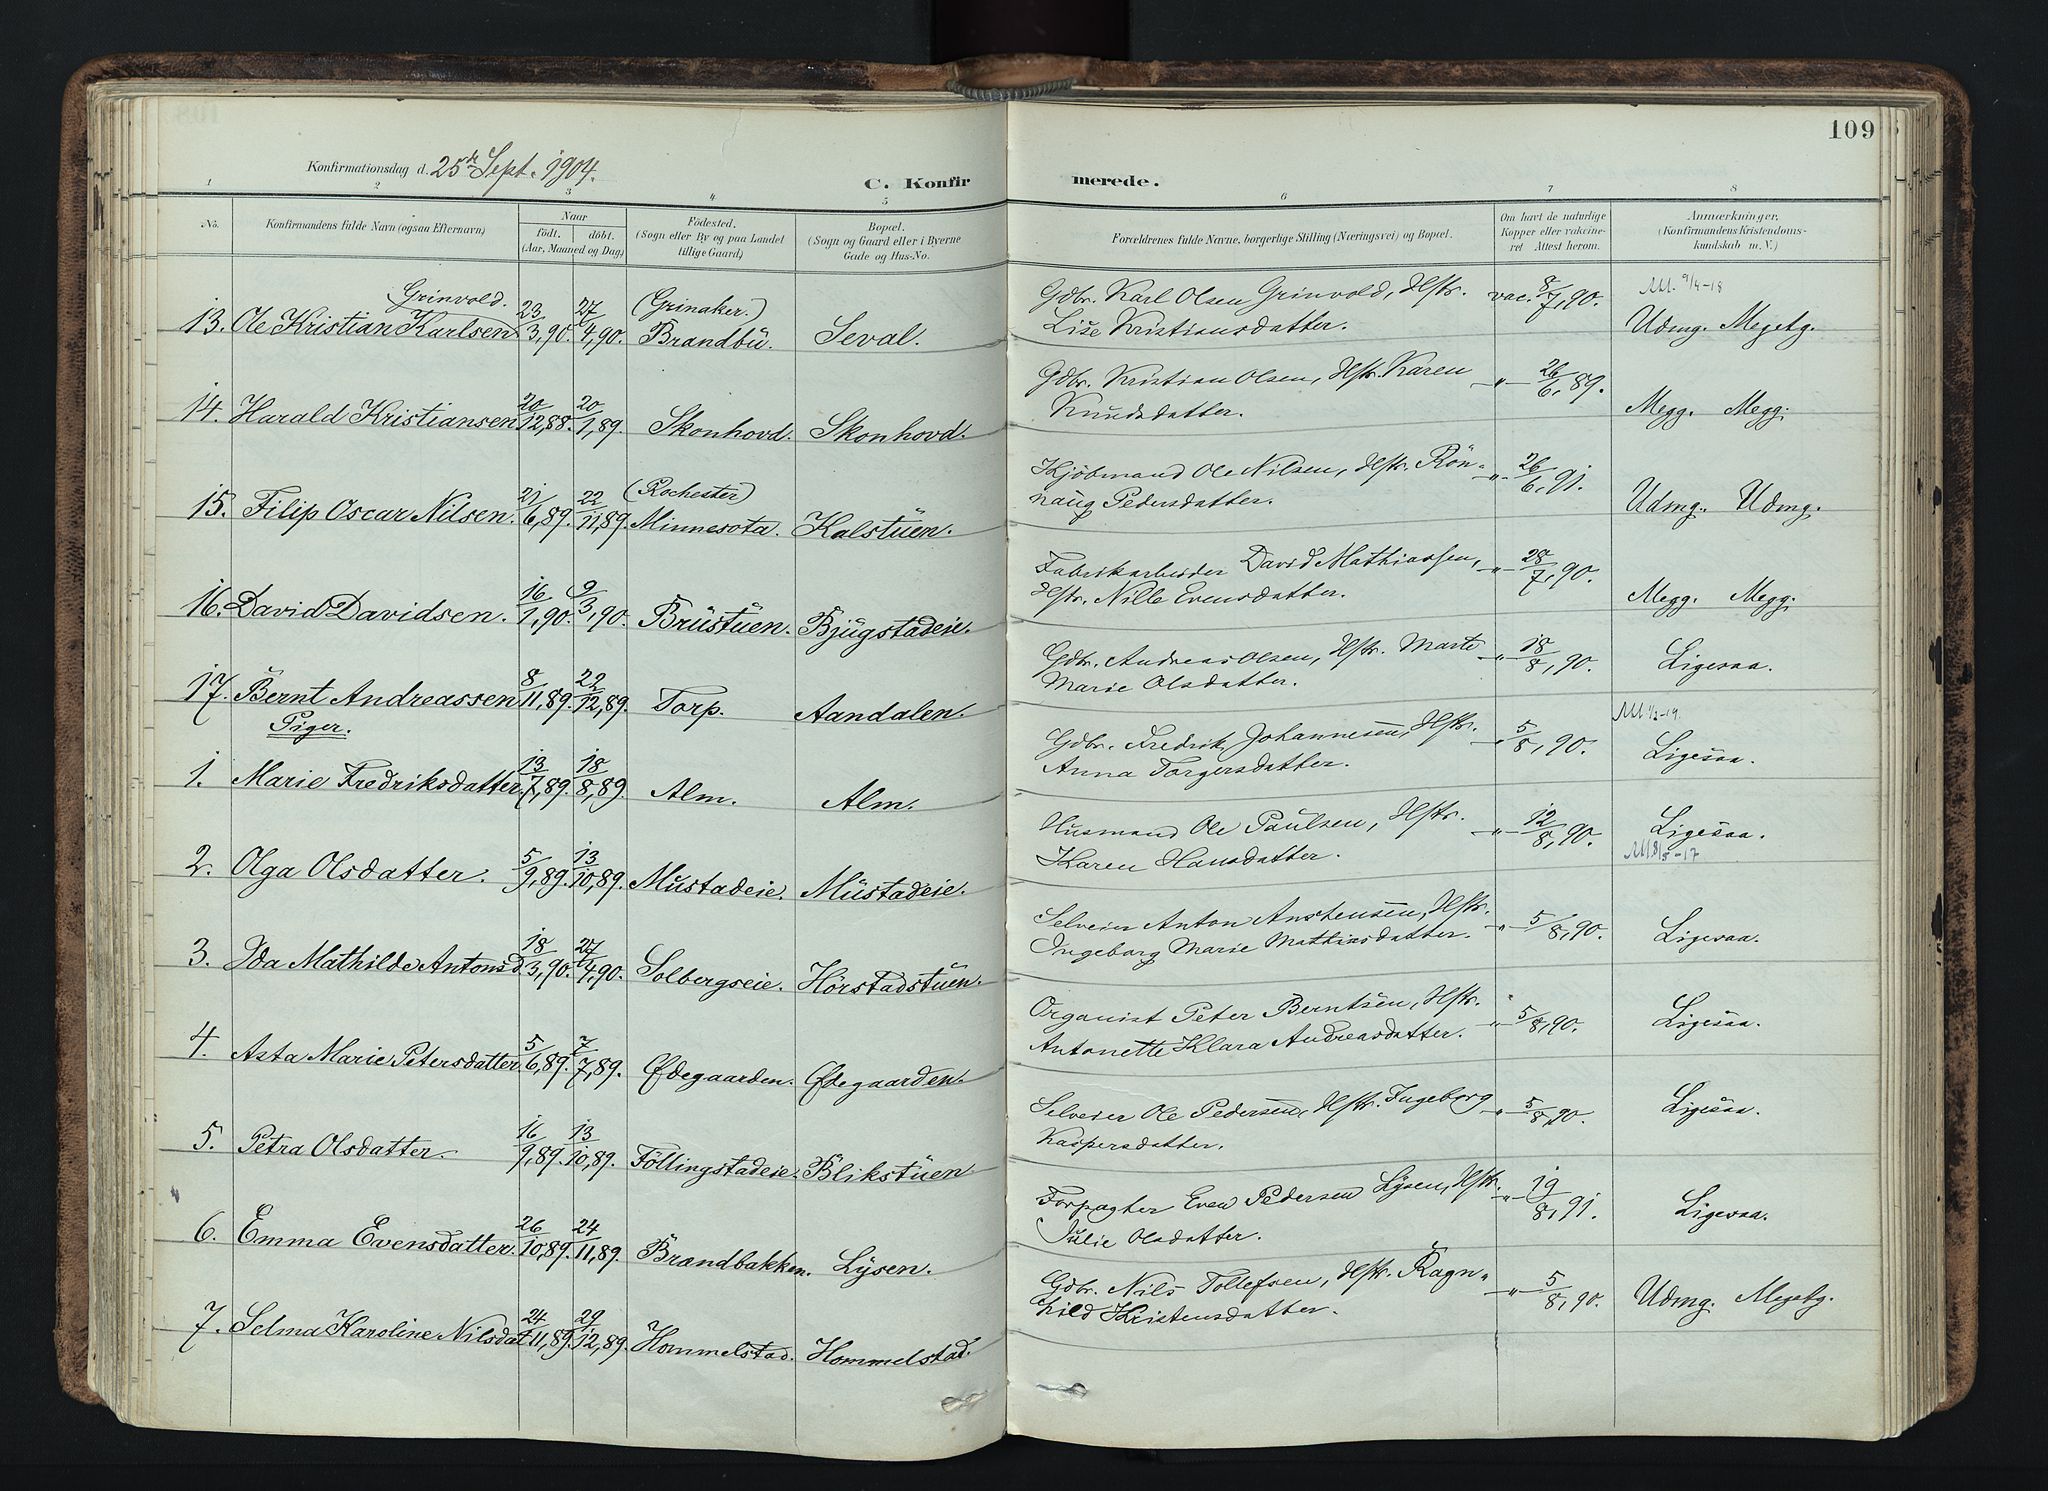 109
Konfirmationsdag d. 25de Sept. 1904.
C. Konfirmerede.
1 2 3 4 5 6 7 8
No. Konfirmandens fulde Navn (ogsaa Efternavn) Naar født. døbt. (Aar, Maaned og Dag) Fødested. (Sogn eller By og paa Landet tillige Gaard) Bopæl. (Sogn og Gaard eller i Byerne Gade og Hus-No. Forældrenes fulde Navne, borgerlige Stilling (Næringsvei) og Bopæl. Om havt de naturlige Kopper eller vaccineret Attest herom. Anmærkninger, (Konfirmandens Kristendomskundskab m. V.)
13. Ole Kristian Karlsen Grinvold. 23/3,90. 27/4,90. (Grinaker.) Brandbu. Seval. Gdbr. Karl Olsen Grinvold, Hstr. Lise Kristiansdatter. vac. 8/7,90. Att. 9/4-18 Udmg. Megetg.
14. Harald Kristiansen 20/12,88. 20/1,89. Skonhovd. Skonhovd. Gdbr. Kristian Olsen, Hstr. Karen Knudsdatter. -"- 26/6,89. Megg. Megg.
15. Filip Oscar Nilsen. 21/6,89. 22/11,89. (Rochester) Minnesota. Kalstuen. Kjøbmand Ole Nilsen, Hstr. Rönnaug Pedersdatter. -"- 26/6,91. Udmg. Udmg.
16. David Davidsen. 16/1,90. 9/3,90. Brustuen. Bjugstadeie. Fabrikarbeider David Mathiassen, Hstr. Nille Evensdatter. -"- 28/7,90. Megg. Megg.
17. Bernt Andreassen 8/11,89. 22/12,89. Torp. Aandalen. Gdbr. Andreas Olsen, Hstr. Marte Marie Olsdatter. -"- 18/8,90. Ligesaa.
Piger.
1. Marie Fredriksdatter. 13/7,89. 18/8,89. Alm. Alm. Gdbr. Fredrik Johannesen, Hstr. Anna Torgersdatter. -"- 5/8,90. Ligesaa.
2. Olga Olsdatter. 5/9,89. 13/10,89. Mustadeie. Mustadeie. Husmand Ole Paulsen, Hstr. Karen Hansdatter. -"- 12/8,90. Ligesaa. Att 8/5-17
3. Ida Mathilde Antonsd. 18/3,90. 27/4,90. Solbergseie. Hörstadstuen. Selveier Anton Anstensen, Hstr. Ingeborg Marie Mathiasdatter. -"- 5/8,90. Ligesaa.
4. Asta Marie Petersdatter 5/6,89. 7/7,89. Ødegaarden. Ødegaarden. Organist Peter Berntsen, Hstr. Antonette Klara Andreasdatter. -"- 5/8,90. Ligesaa.
5. Petra Olsdatter. 16/9,89. 13/10,89. Föllingstadeie. Blikstuen Selveier Ole Pedersen, Hstr. Ingeborg Kaspersdatter. -"- 5/8,90. Ligesaa.
6. Emma Evensdatter. 26/10,89. 24/11,89. Brandbakken. Lysen. Forpagter Even Pedersen Lysen, Hstr. Julie Olsdatter. -"- 19/8,91. Ligesaa.
7. Selma Karoline Nilsdat 24/11,89. 29/12,89. Hommelstad. Hommelstad. Gdbr. Nils Tollefsen, Hstr. Ragnhild Kristensdatter. -"- 5/8,90. Udmg. Megetg.